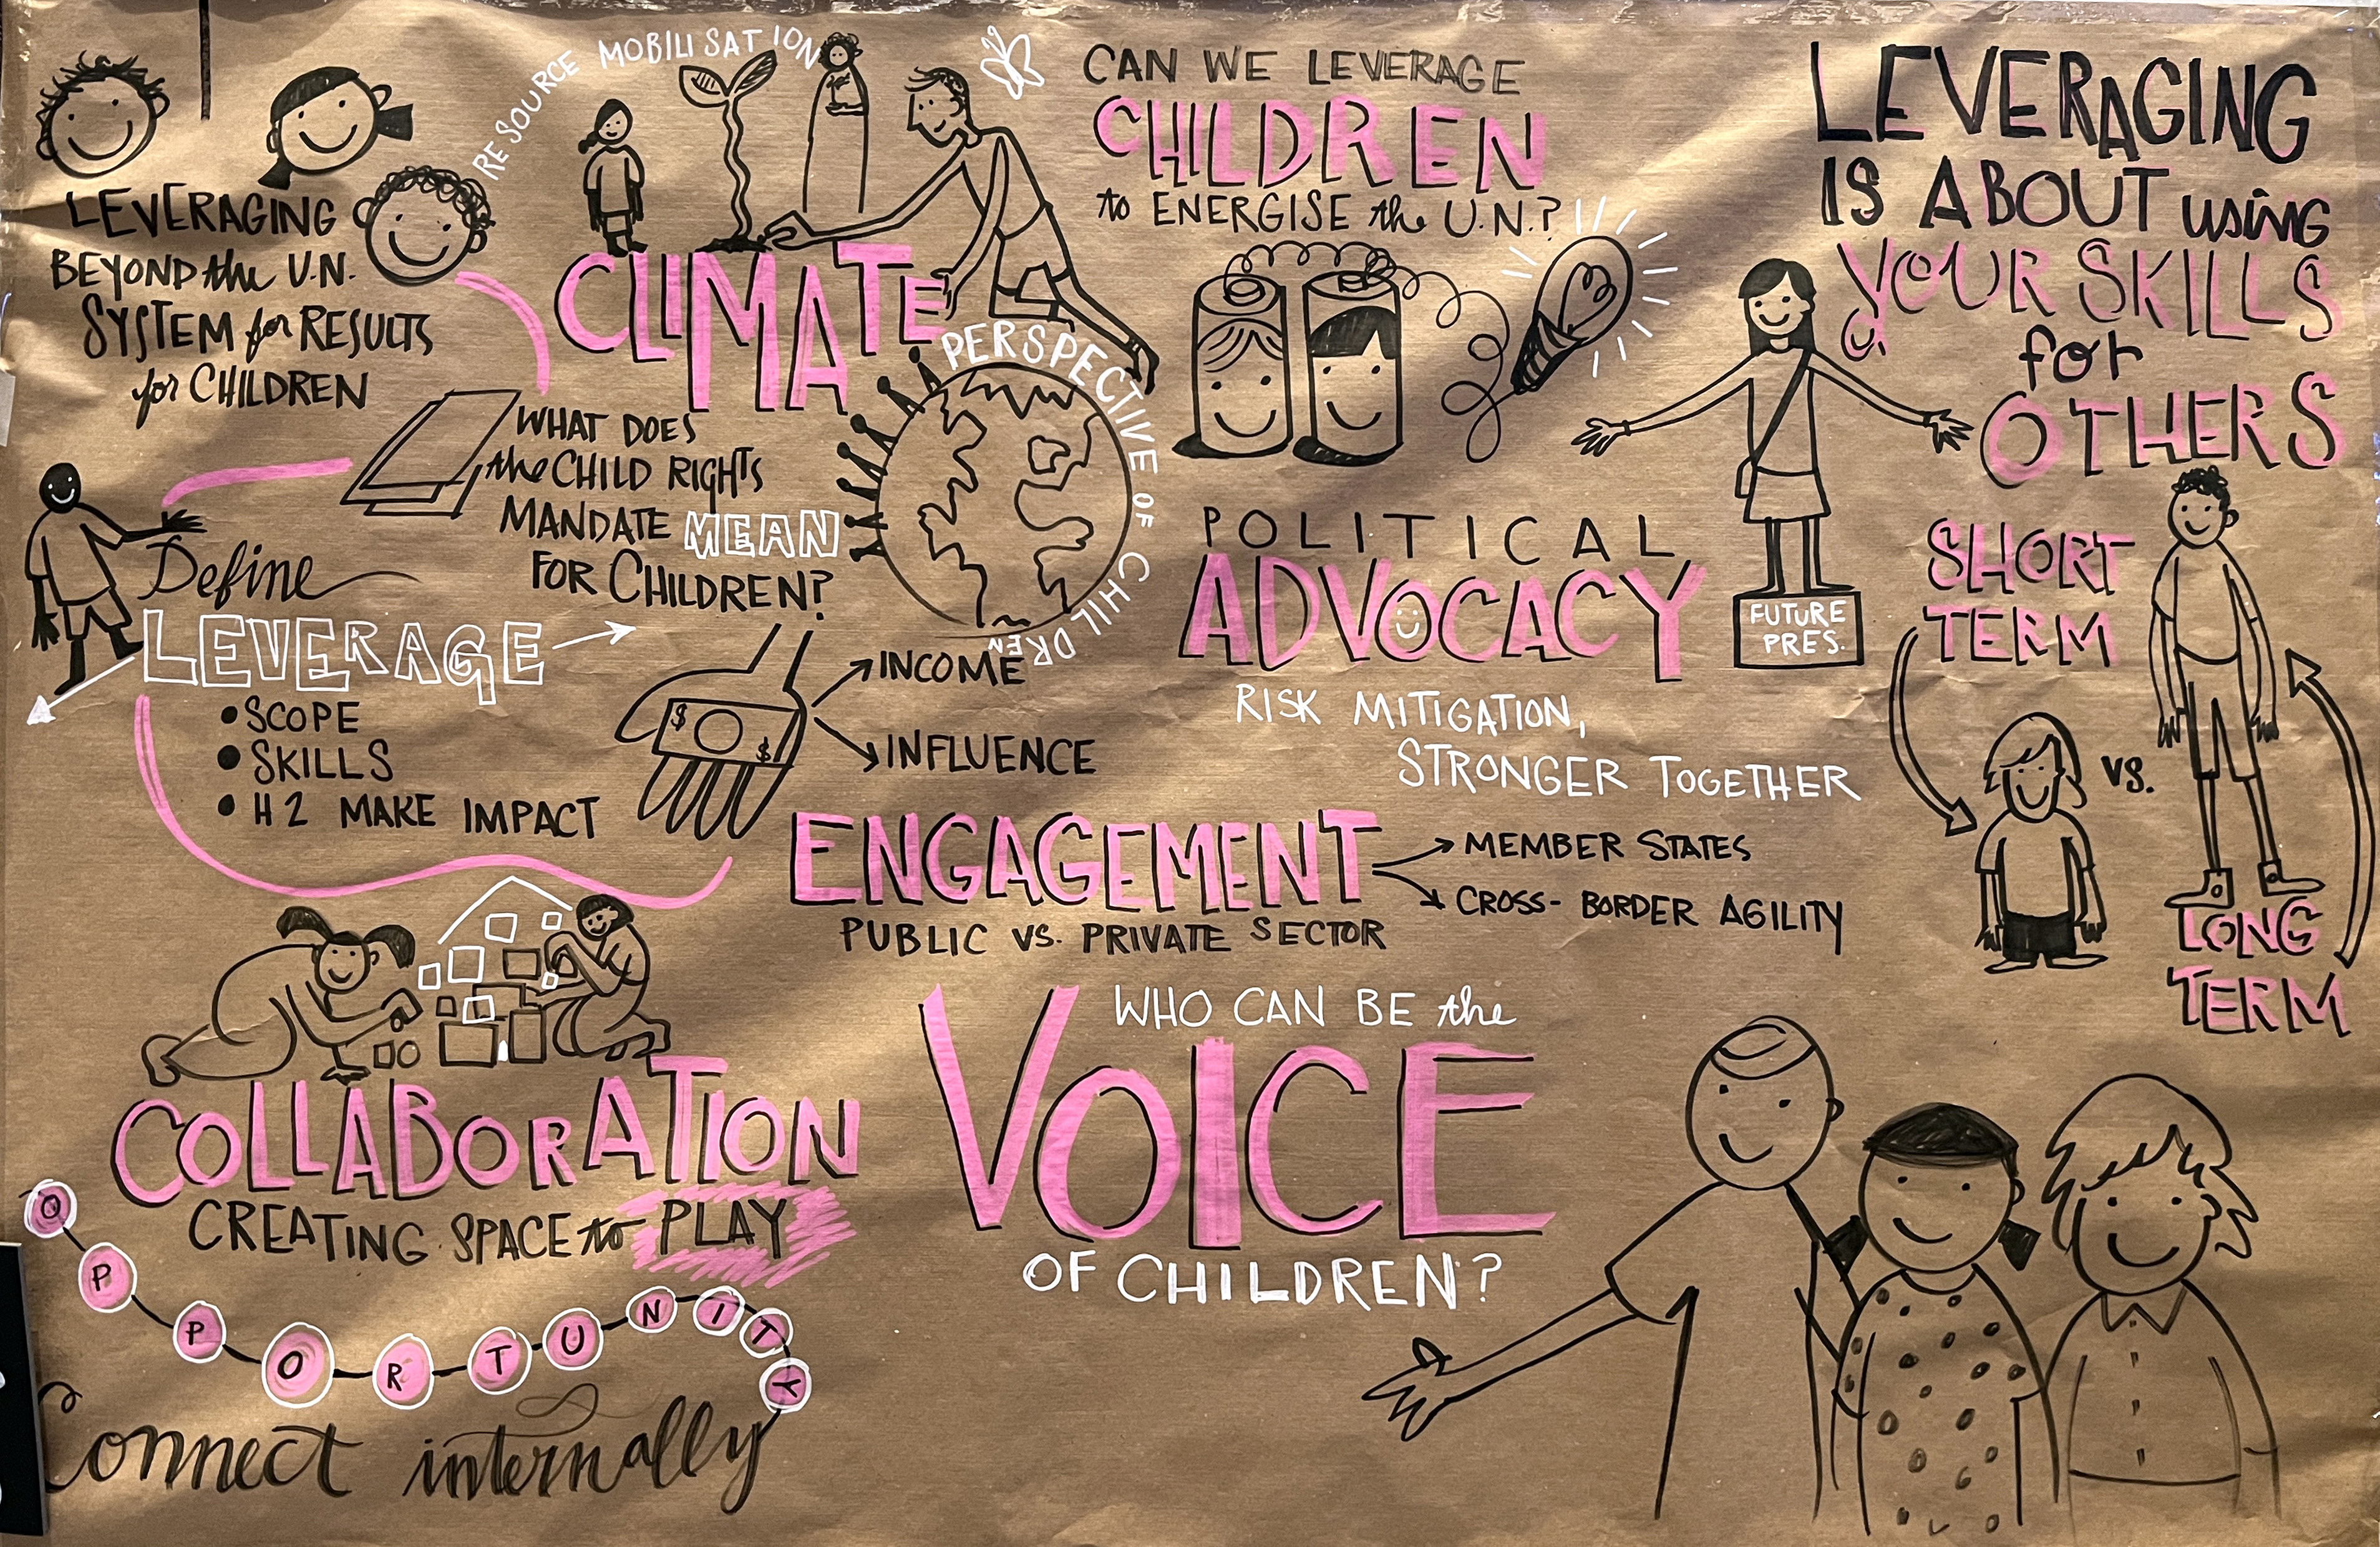 RESOURCE MOBILISATION
LEVERAGING
BEYOND the U.N.
SYSTEM for RESULTS
for CHILDREN
CLIMATE
CAN WE LEVERAGE
CHILDREN
to ENERGISE the U.N.?
LEVERAGING
IS ABOUT using
YOUR SKILLS
for
OTHERS
WHAT DOES
the CHILD RIGHTS
MANDATE MEAN
FOR CHILDREN?
PERSPECTIVE OF CHILDREN
Define
LEVERAGE
• SCOPE
• SKILLS
• H2 MAKE IMPACT
$
$
INCOME
INFLUENCE
POLITICAL
ADVOCACY
RISK MITIGATION,
STRONGER TOGETHER
FUTURE
PRES.
SHORT
TERM
VS.
LONG
TERM
ENGAGEMENT
PUBLIC VS. PRIVATE SECTOR
MEMBER STATES
CROSS-BORDER AGILITY
COLLABORATION
CREATING SPACE to PLAY
OPPORTUNITY
Connect internally
WHO CAN BE the
VOICE
OF CHILDREN?